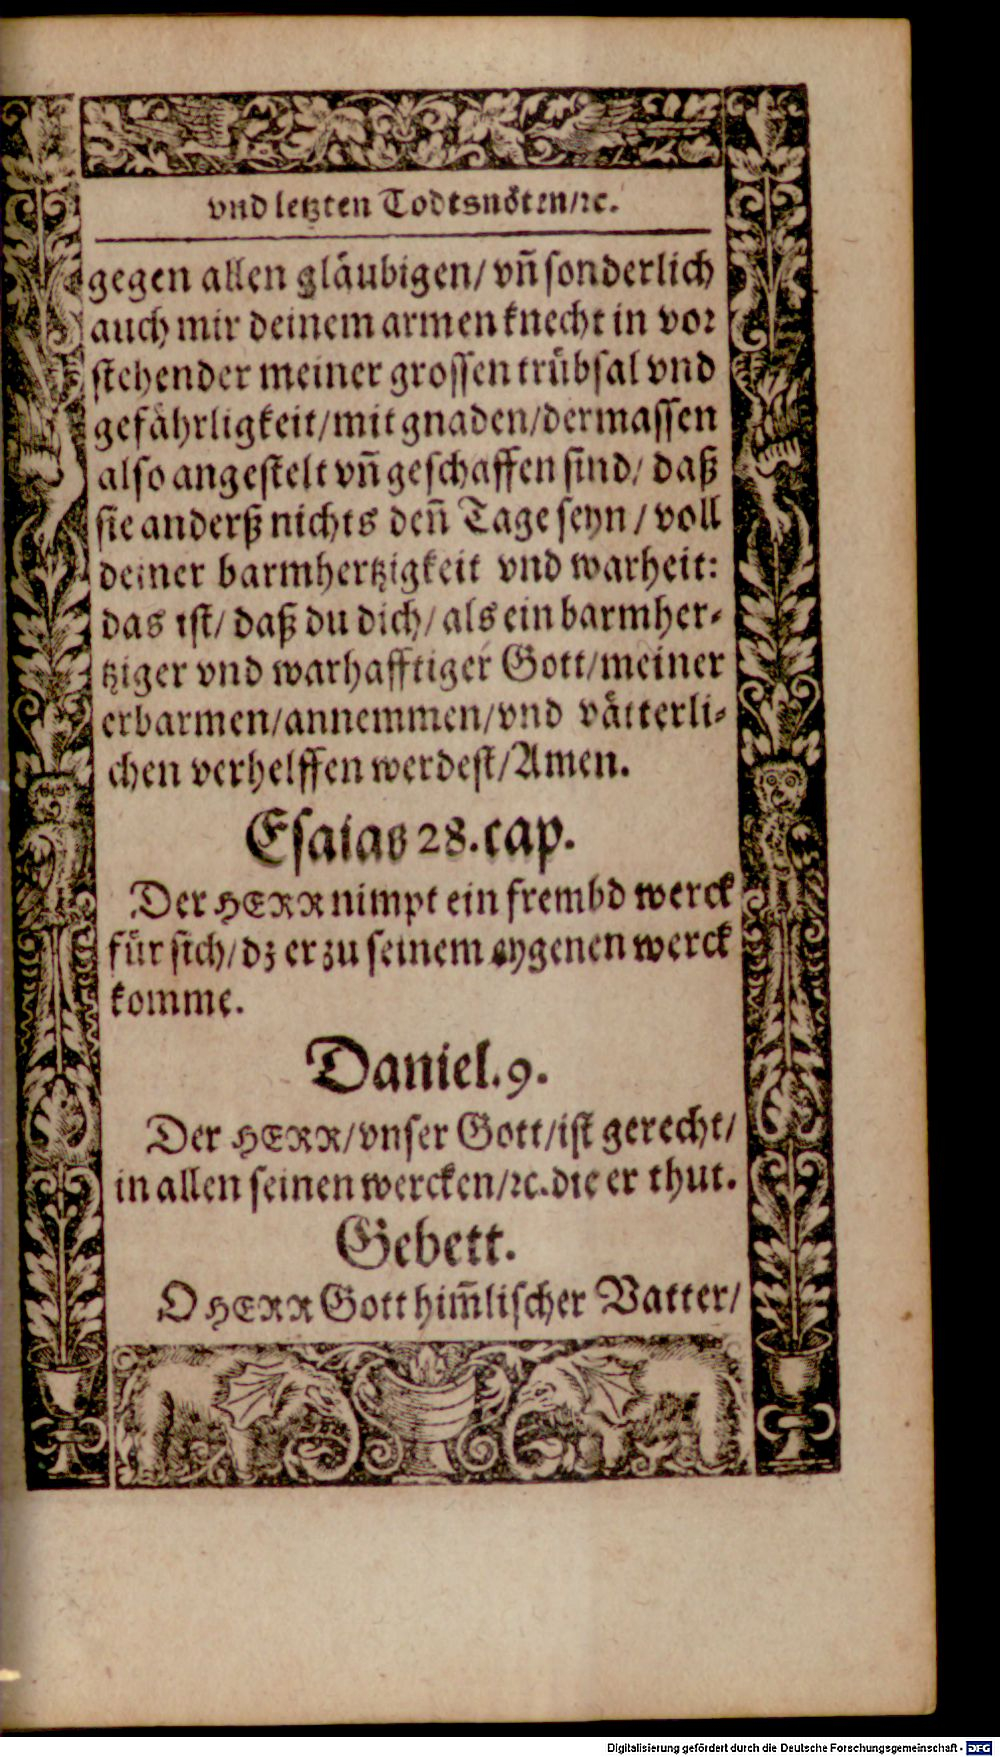 vnd letzten Todtsnöten/ꝛc.
gegen allen gläubigen/ vñ sonderlich
auch mir deinem armen knecht in vor
stehender meiner grossen trübsal vnd
gefährligkeit/mit gnaden/dermassen
also angestelt vñ geschaffen sind/ daß
sie anderß nichts deñ Tage seyn / voll
deiner barmhertzigkeit vnd warheit:
das ist/ daß du dich/ als ein barmher-
tziger vnd warhafftiger Gott/meiner
erbarmen/annemmen/vnd vätterli-
chen verhelffen werdest/Amen.
Esaias 28. cap.
Der HERR nimpt ein frembd werck
für sich/ dz er zu seinem eygenen werck
komme.
Daniel. 9.
Der HERR/vnser Gott/ist gerecht/
in allen seinen wercken/ꝛc. die er thut.
Gebett.
O HERR Gott him̃lischer Vatter/
Digitalisierung gefördert durch die Deutsche Forschungsgemeinschaft - DFG